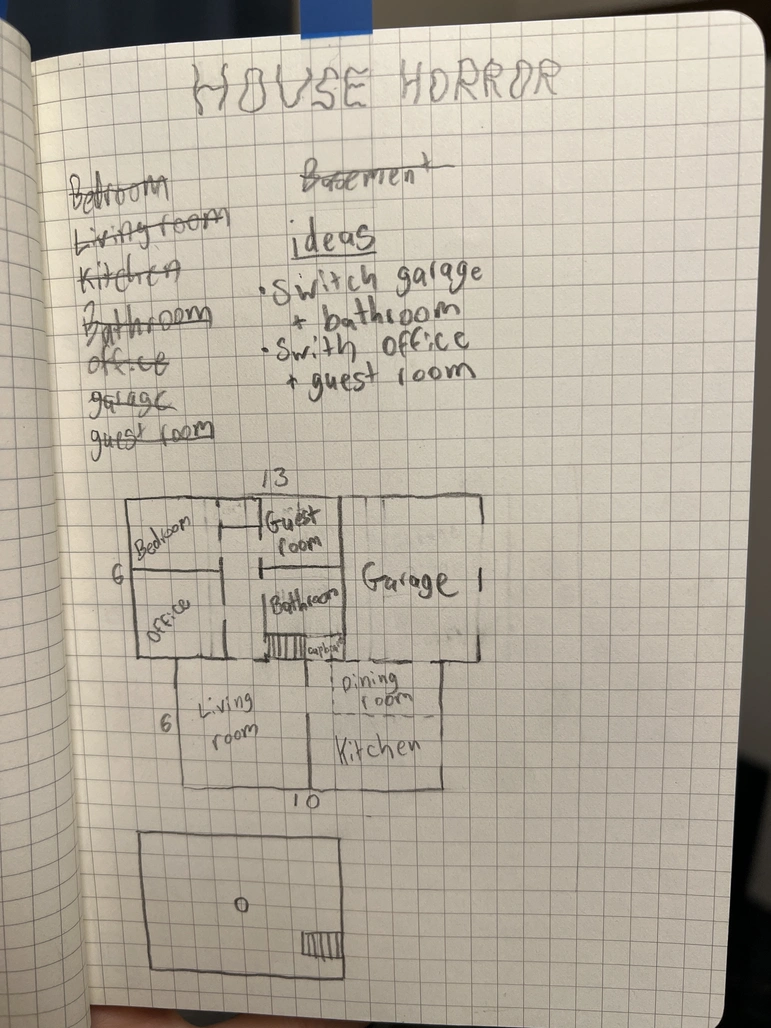 HOUSE HORROR
Bedroom
Living room
Kitchen
Bathroom
office
garage
guest room
Basement
ideas
• Switch garage
+ bathroom
• Swith office
+ guest room
13
Bedroom
Guest
room
6
Garage
Office
Bathroom
Dining
room
Living
room
6
Kitchen
10